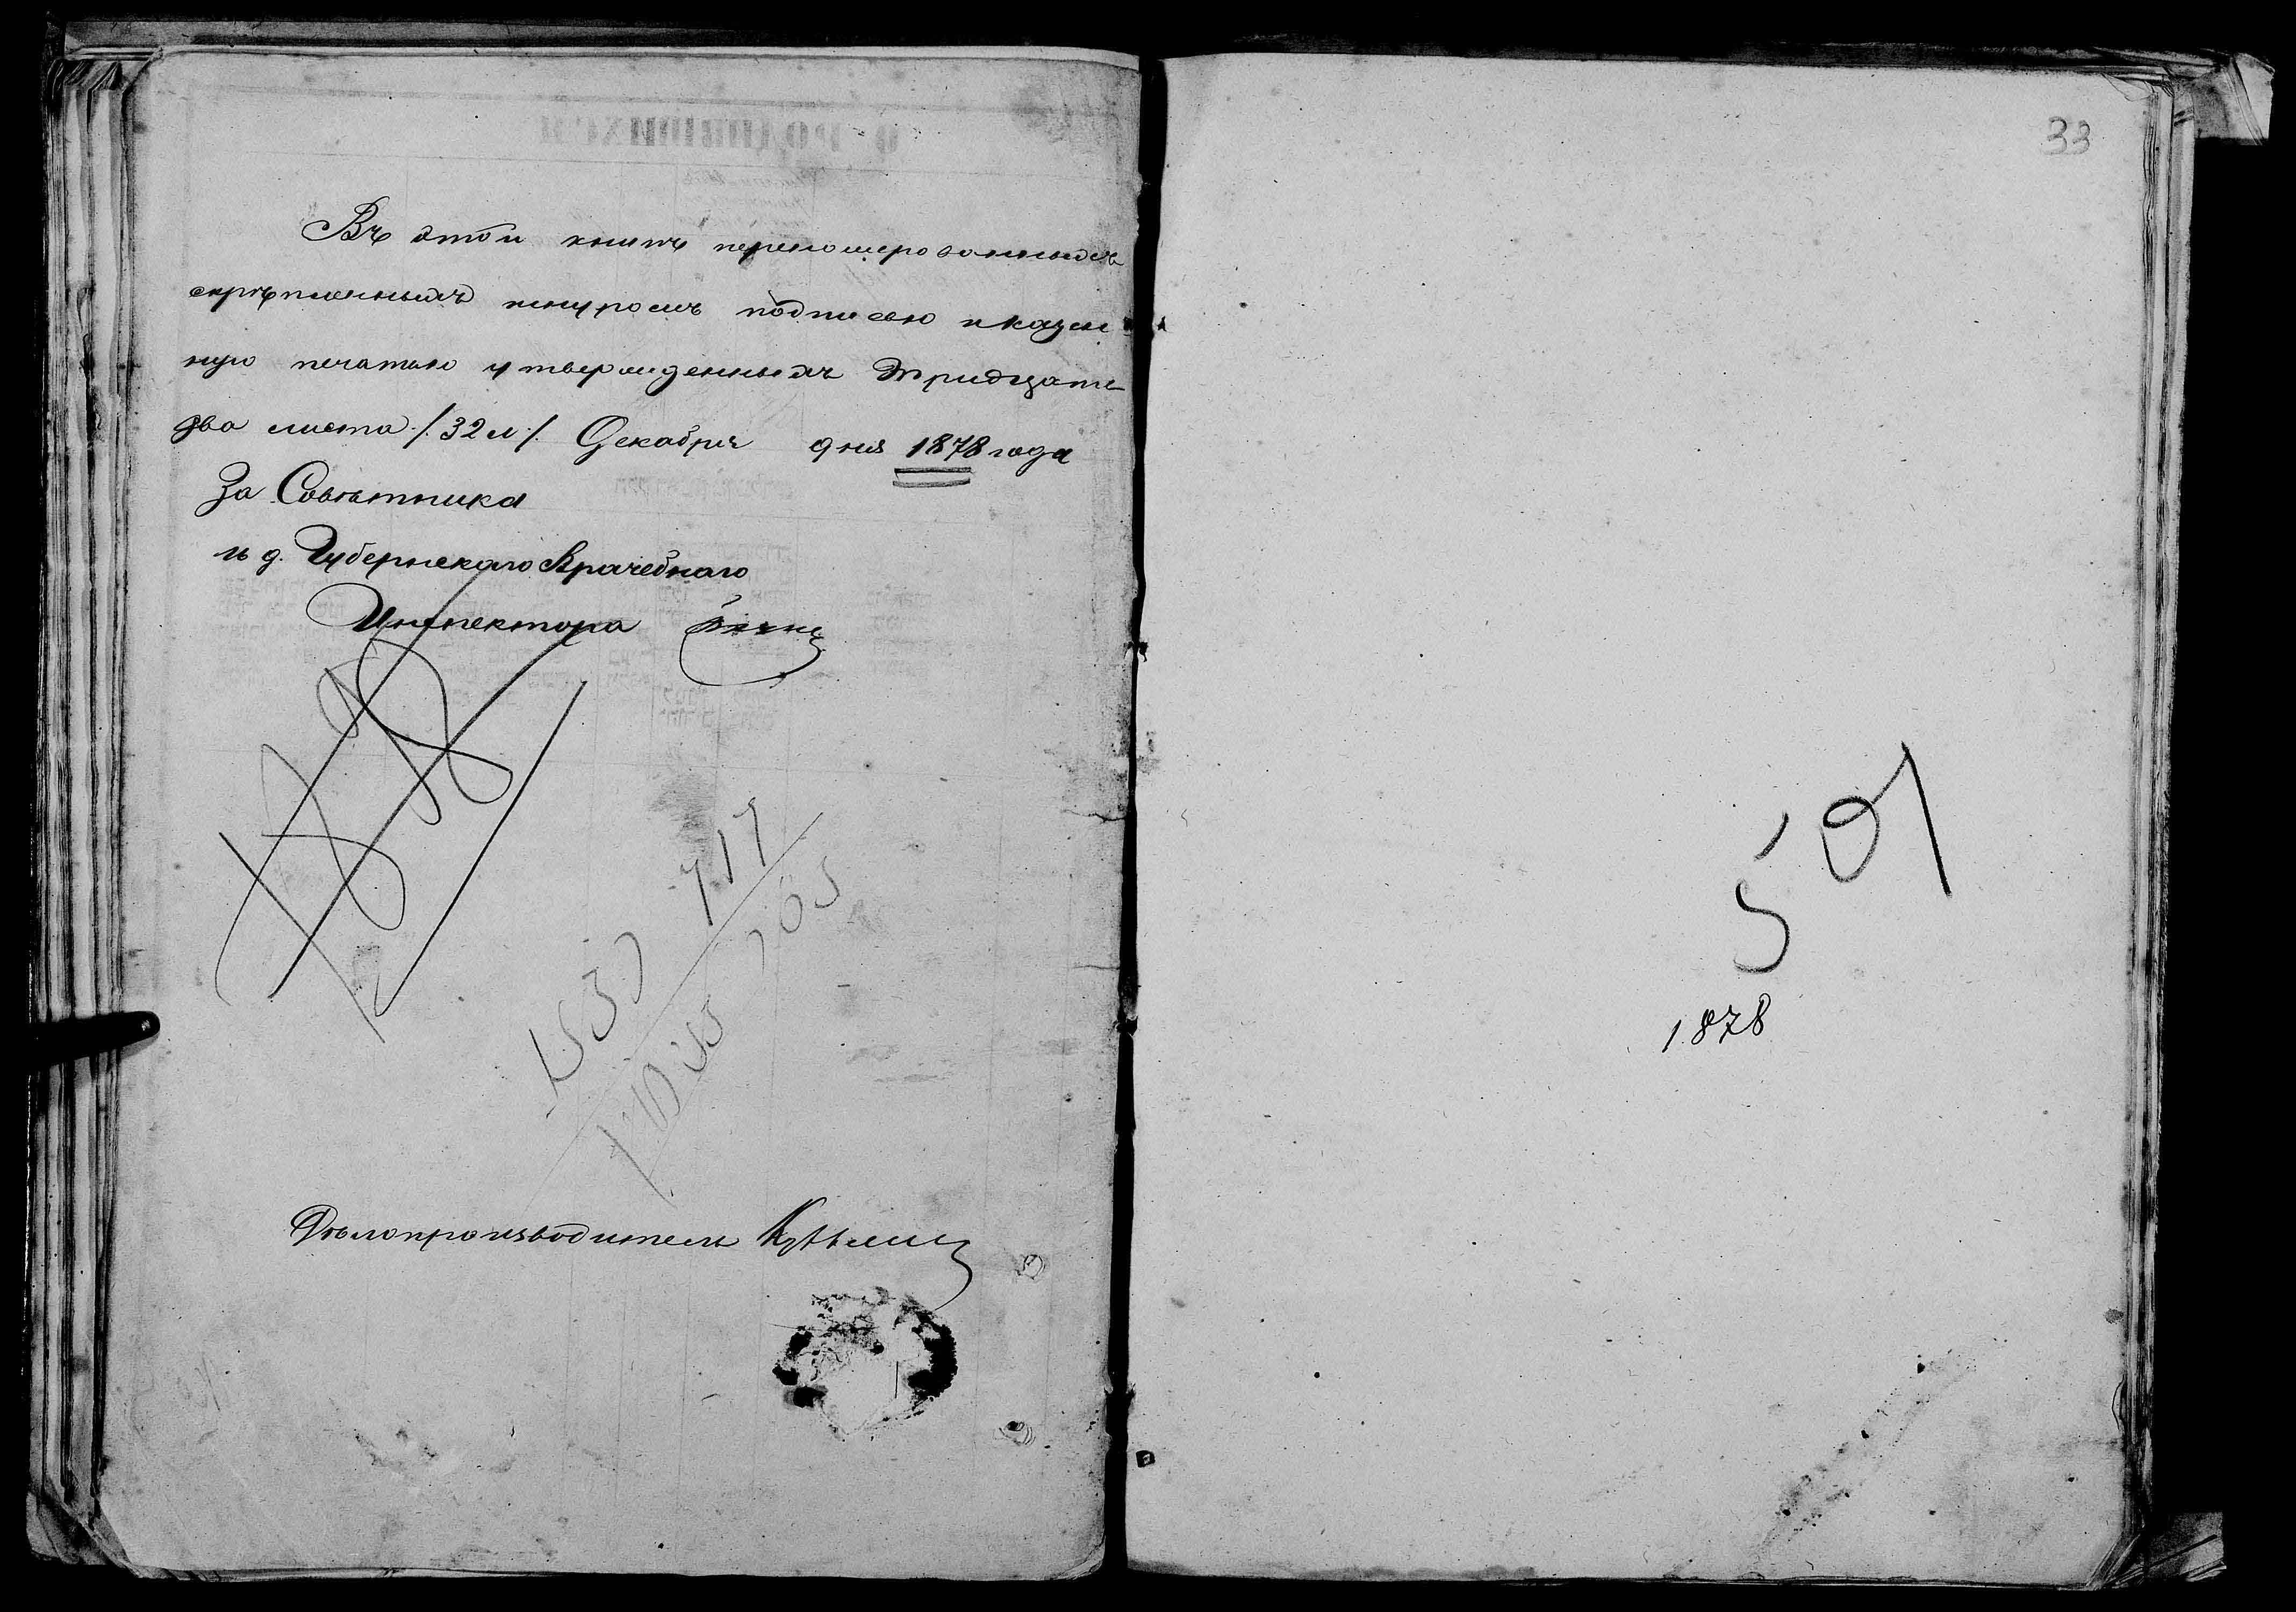 Въ этой книгѣ переномерованныхъ
скрѣпленныхъ шнуромъ подписью и казен
ную печатью утвержденныхъ тридцать
два листа /.32 л./ Декабря дня 1878 года
За Совѣтника
и д. Губернскаго Врачебнаго
Инспектора
717
Дѣлопроизводитель
33
501
1878